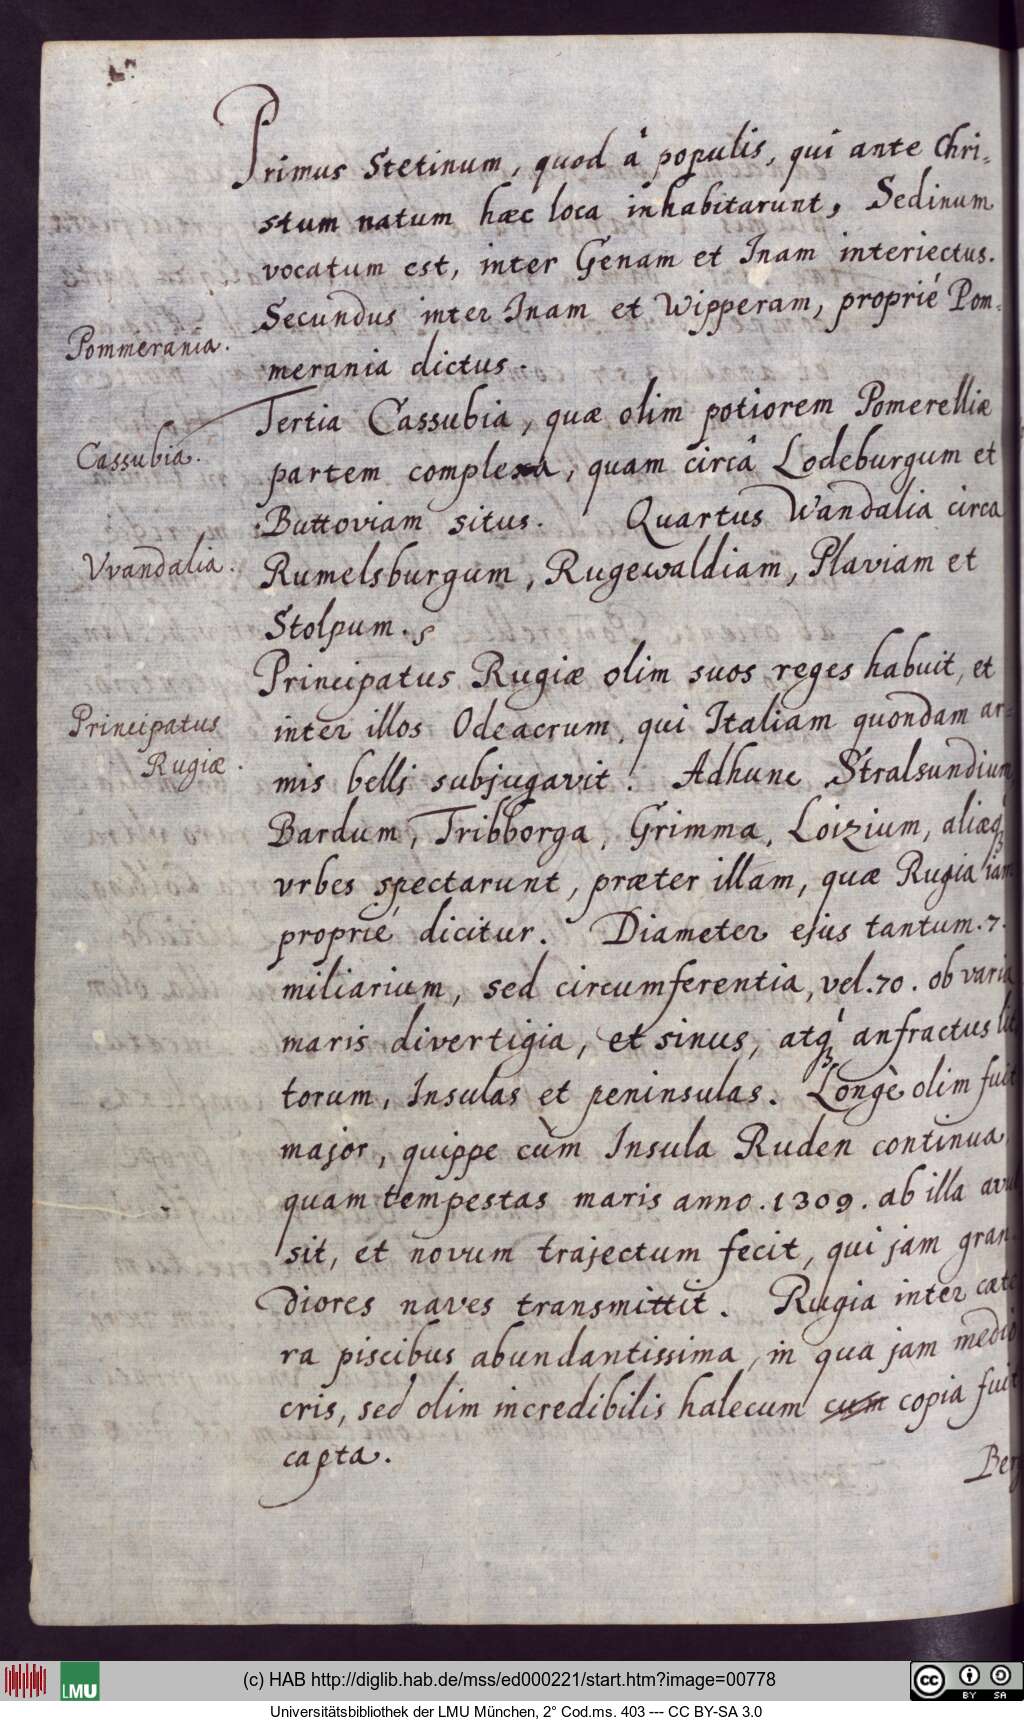 Primus Stetinum, quod â populis, qui ante Chri=
stum natum hæc loca inhabitarunt, Sedinum
vocatum est, inter Genam et Inam interiectus.
Secundus inter Inam et Wipperam, proprié Pom=
Pommerania.
merania dictus.
Tertia Cassubia, quæ olim potiorem Pomerelliæ
Cassubia.
partem complexa, quam circâ Lodeburgum et
Buttoviam situs. Quartus Wandalia circa
Vvandalia.
Rumelsburgum, Rugewaldiam, Plaviam et
Stolpum.
Principatus Rugiæ olim suos reges habuit, et
Principatus
inter illos Odeacrum, qui Italiam quondam ar=
Rugiæ.
mis belli subjugavit. Adhunc Stralsundium,
Bardum, Tribborga, Grimma, Loizium, aliæq́ꝫ
vrbes spectarunt, præter illam, quæ Rugia iam
proprié dicitur. Diameter ejus tantum .7.
miliarium, sed circumferentia, vel .70. ob varia
maris divertigia, et sinus, atq́ꝫ anfractus lit
torum, Insulas et peninsulas. Longè olim fuit
major, quippe cùm Insula Ruden continua,
quam tempestas maris anno .1309. ab illa avul
sit, et novum trajectum fecit, qui jam gran=
diores naves transmittit. Rugia inter cate
ra piscibus abundantissima, in qua jam medio
cris, sed olim incredibilis halecum cum copia fuit
capta.
Ber
(c) HAB http://diglib.hab.de/mss/ed000221/start.htm?image=00778
LMU
BY SA
Universitätsbibliothek der LMU München, 2° Cod.ms. 403 --- CC BY-SA 3.0